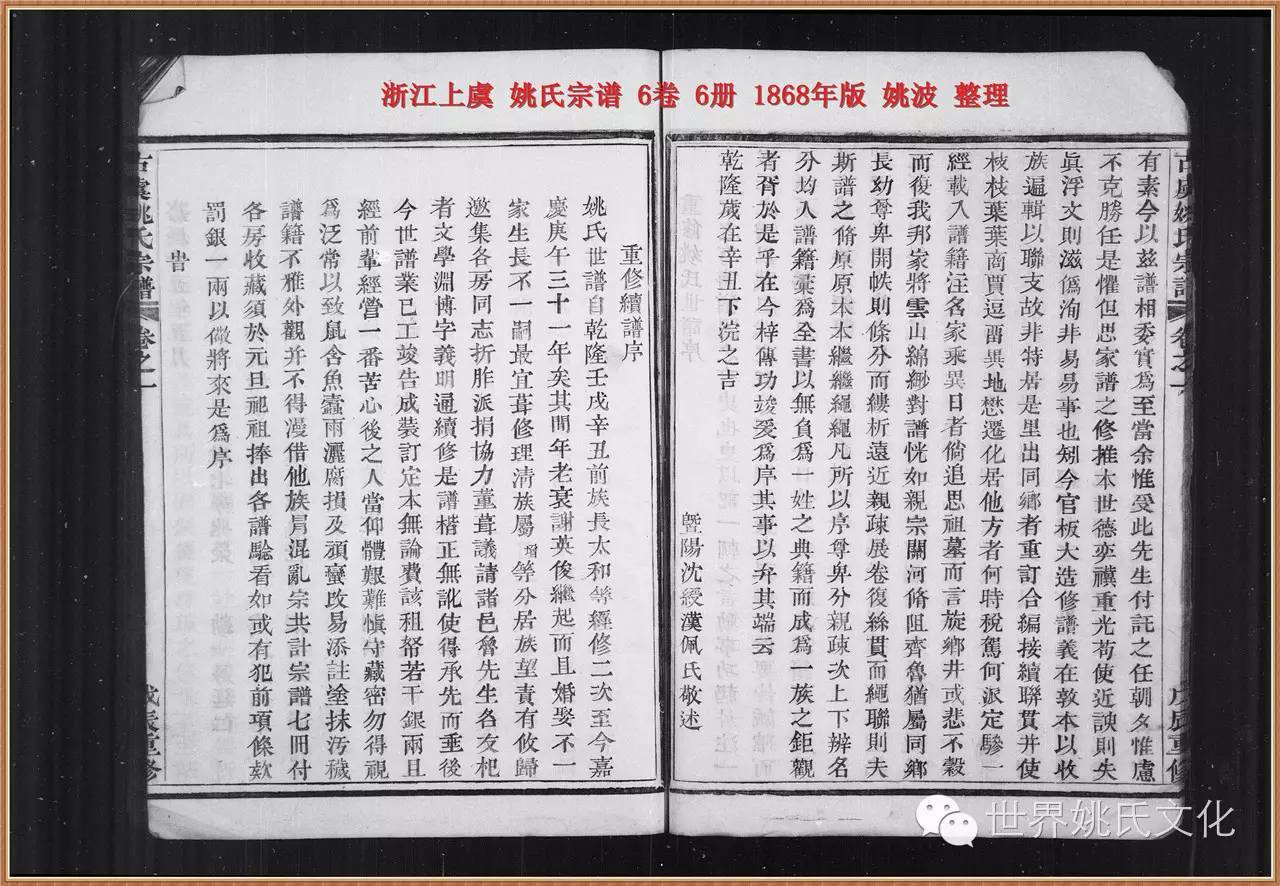 浙江上虞 姚氏宗谱 6卷 6册 1868年版 姚波 整理
古虞姚氏宗譜 卷之一 戊辰重修
有素今以兹譜相委實爲至當余惟受此先生付託之任朝夕惟慮
不克勝任是懼但思家譜之修推本世德奕禩重光苟使近諛則失
眞浮文則滋僞洵非易易事也矧今官板大造修譜義在敦本以收
族遍輯以聯支故非特居是里出同鄉者重訂合編接續聯貫并使
枝枝葉葉商賈逗畱異地懋遷化居他方者何時稅駕何派定驂一
經載入譜籍注名家乘異日者倘追思祖墓而言族鄉井或悲不穀
而復我邦家將雲山綿緲對譜恍如親宗關河脩阻齊魯猶屬同鄉
長幼尊卑開帙則條分而縷析遠近親疎展卷復絲貫而繩聯則夫
斯譜之脩原原本本繼繼繩繩凡所以序尊卑分親疎次上下辨名
分均入譜籍彙爲全書以無負爲一姓之典籍而成爲一族之鉅觀
者胥於是乎在今梓傳功竣爰爲序其事以弁其端云
乾隆歲在辛丑下浣之吉
曁陽沈綬漢佩氏敬述
重修續譜序
姚氏世譜自乾隆壬戌辛丑前族長太和等經修二次至今嘉
慶庚午三十一年矣其閒年老衰謝英俊繼起而且婚娶不一
家生長不一嗣最宜葺修理清族屬增等分居族望責有攸歸
邀集各房同志折胙派捐協力董葺議請諸邑魯先生名友杞
者文學淵博字義明通續修是譜楷正無訛使得承先而垂後
今世譜業已工竣告成裝訂定本無論費該租帑若干銀兩且
經前輩經營一番苦心後之人當仰體艱難愼守藏密勿得視
爲泛常以致鼠舍魚蠹雨灑腐損及頑蠻改易添註塗抹汚穢
譜籍不雅外觀并不得漫借他族冐混亂宗共計宗譜七冊付
各房收藏須於元旦祀祖捧出各譜驗看如或有犯前項條款
罰銀一兩以儆將來是爲序
古虞姚氏宗譜 卷之一 戊辰重修
世界姚氏文化